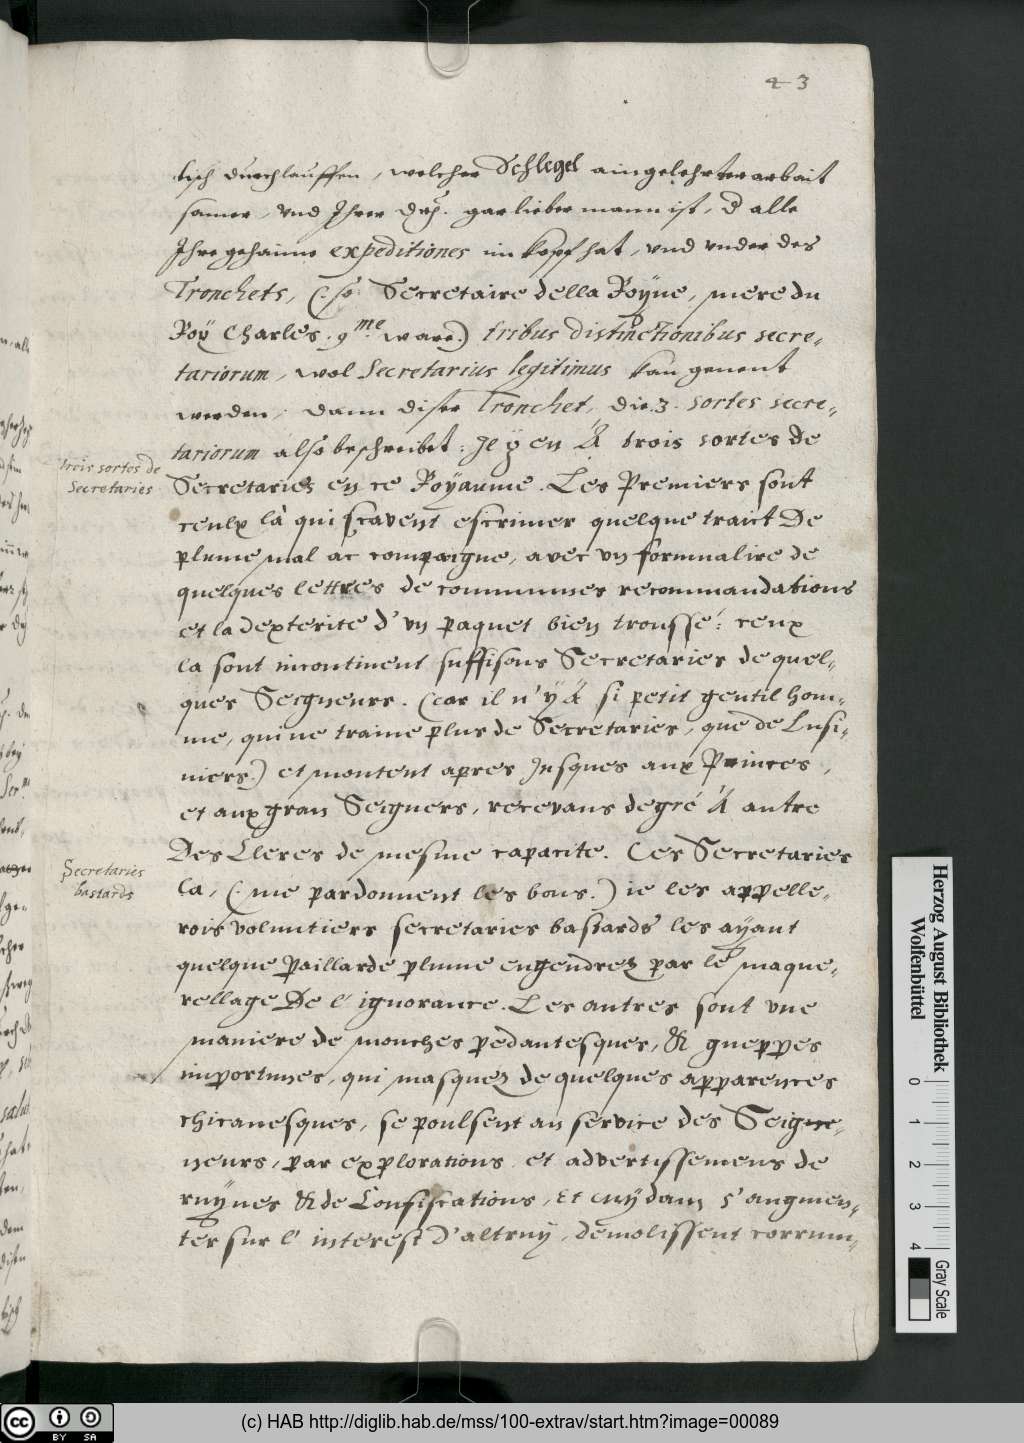 43
tisch durchlauffen, welcher Schlegel ain gelehrter arbait
samer, vnd Ihrer Drh. gar lieber mann ist, d alle
Ihre gehaime expeditiones im kopf hat, vnd vnder des
Tronchets, (: so Secretaire della Royne, mere du
Roÿ Charles. 9.me ware) tribus distinctionibus secre-
tariorum, wol Secretarius legitimus kan genent
werden, dann diser Tronchet, die .3. sortes secre-
tariorum also beschreibet: Il ÿ en Á trois sortes de
trois sortes de
Secretaries
Secretariez en ce Royaume. Les Premiers sont
ceulx là qui scavent escrimer quelque traict De
plume mal accompaigne, avec vn formulaire de
quelques lettres de communes recommandations
et la dexterite d' vn paquet bien troussé: ceux
la sont incontinent suffisans Secretaries de quel-
ques Seigneurs. (car il n'ÿ Á si petit gentil hom-
me, qui ne traine plus de Secretaries, que de Cusi-
niers) et montent apres Jusques aux Princes,
et aux gran Seigners, recevans degré Á autre
Des Clercs de mesme capacite. Ces Secretaries
Secretaries
bastards
la, (: me pardonnent les bons.) ie les appelle-
rois voluntiers secretaries bastards les ayant
quelque Paillarde plume engendrez par le maque-
rellage De l' ignorance. Les autres sont vne
maniere de mouches pedantesques, & gueppes
importunes, qui masquez de quelques apparences
chicanesques, se poulsent au service des Seigne-
neurs, par explorations et advertissemens de
ruÿnes & de Confiscations, Et cuÿdans s' augmen-
ter sur l' interest d'altruÿ, demolissent corrum-
Herzog August Bibliothek
Wolfenbüttel
0 1 2 3 4
Gray Scale
cc BY SA
(c) HAB http://diglib.hab.de/mss/100-extrav/start.htm?image=00089